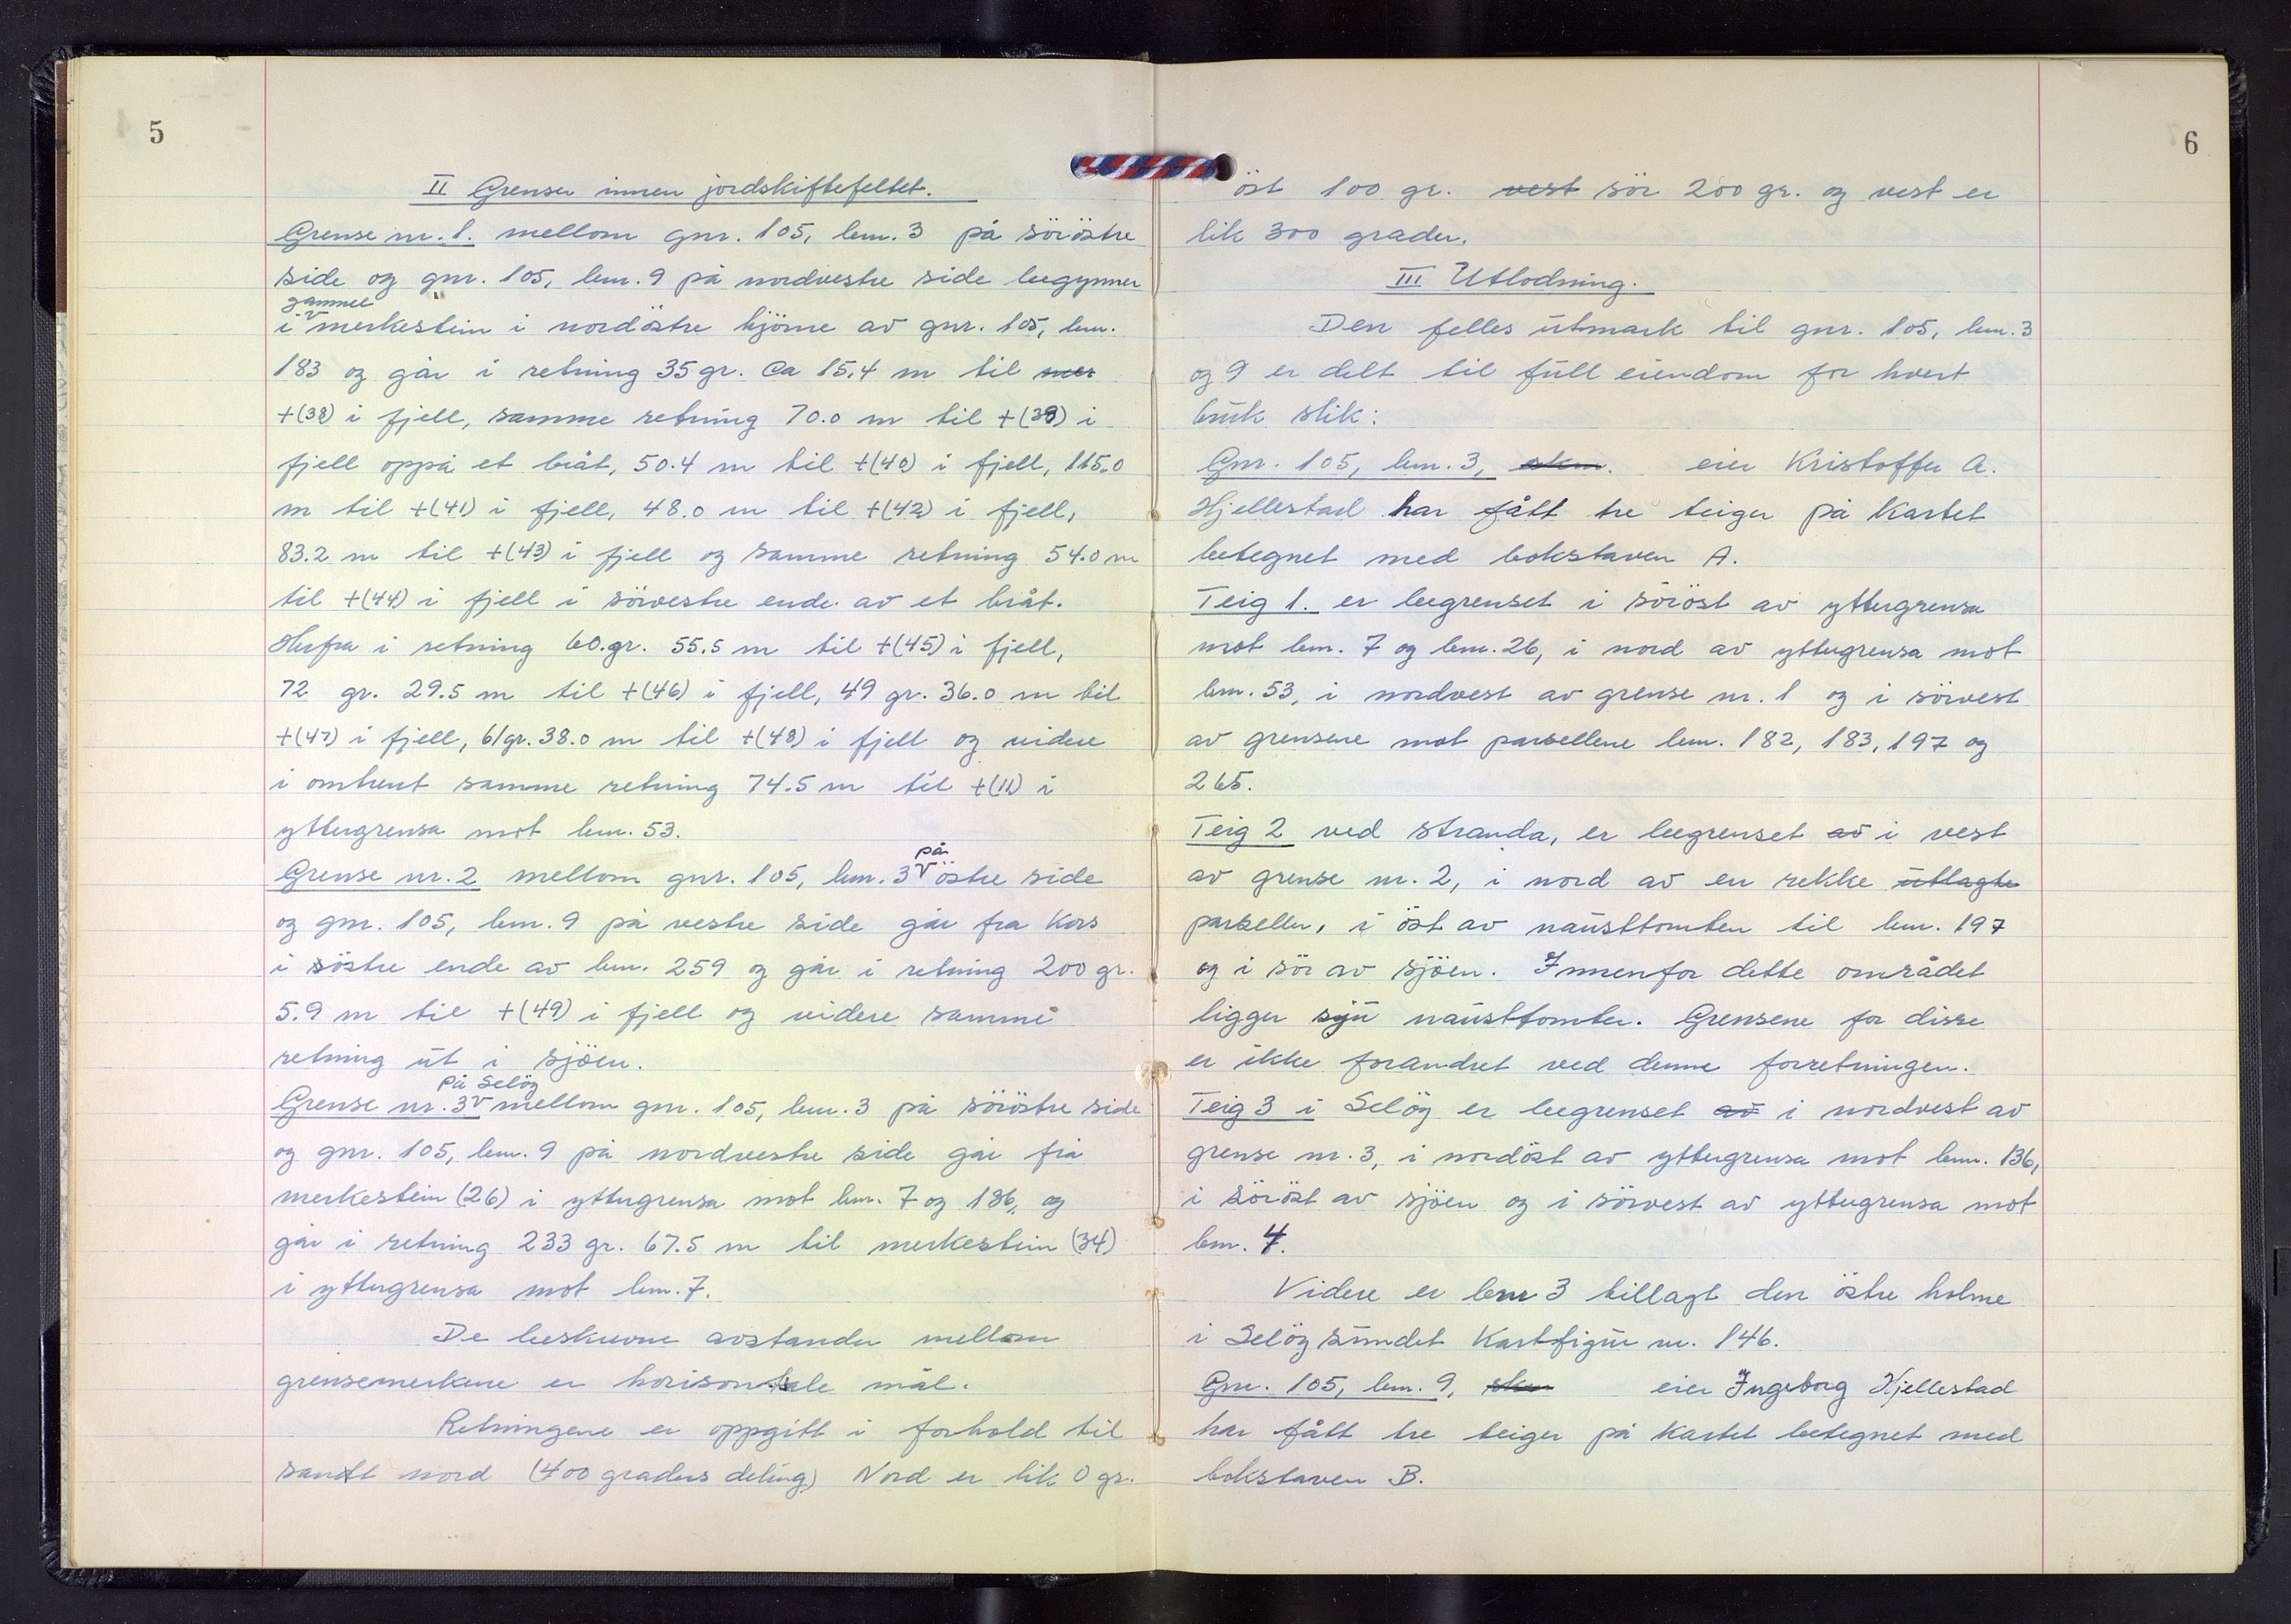 5
II Grenser innen jordskiftefeltet.
Grense nr. 1. mellom gnr. 105, bnr. 3 på söröstre
side og gnr. 105, bnr. 9 på nordvestre side begynner
gammel
i merkestein i nordöstre hjörne av gnr. 105, bnr.
183 og går i retning 35 gr. Ca 15.4 m til mer
+(38) i fjell, samme retning 70.0 m til +(39) i
fjell oppå et bråt, 50.4 m til +(40) i fjell, 115.0
m til +(41) i fjell, 48.0 m til +(42) i fjell,
83.2 m til +(43) i fjell og samme retning 54.0 m
til +(44) i fjell i sörvestre ende av et bråt.
Herfra i retning 60. gr. 55.5 m til +(45) i fjell,
72 gr. 29.5 m til +(46) i fjell, 49 gr. 36.0 m til
+(47) i fjell, 61 gr. 38.0 m til +(48) i fjell og videre
i omtrent samme retning 74.5 m til +(11) i
yttergrensa mot bnr. 53.
på
Grense nr. 2 mellom gnr. 105, bnr. 3 östre side
og gnr. 105, bnr. 9 på vestre side går fra Kors
i söstre ende av bnr. 259 og går i retning 200 gr.
5.9 m til +(49) i fjell og videre samme
retning ut i sjöen.
på Selöy
Grense nr. 3 mellom gnr. 105, bnr. 3 på söröstre side
og gnr. 105, bnr. 9 på nordvestre side går fra
merkestein (26) i yttergrensa mot bnr. 7 og 136, og
går i retning 233 gr. 67.5 m til merkestein (34)
i yttergrensa mot bnr. 7.
De beskrevne avstander mellom
grensemerkene er horisontale mål.
Retningene er oppgitt i forhold til
sandt nord (400 graders deling) Nord er lik 0 gr.
6
öst 100 gr. vest sör 200 gr. og vest er
lik 300 grader.
III Utlodning.
Den felles utmark til gnr. 105, bnr. 3
og 9 er delt til full eiendom for hvert
bruk slik:
Gnr. 105, bnr. 3, skm. eier Kristoffer A.
Hjellestad har fått tre teiger på Kartet
betegnet med bokstaven A.
Teig 1. er begrenset i söröst av yttergrensa
mot bnr. 7 og bnr. 26, i nord av yttergrensa mot
bnr. 53, i nordvest av grense nr. 1 og i sörvest
av grensene mot parsellene bnr. 182, 183, 197 og
265.
Teig 2 ved stranda, er begrenset av i vest
av grense nr. 2, i nord av en rekke utlagte
parseller, i öst av nausttomten til bnr. 197
og i sör av sjöen. Innenfor dette området
ligger syu nausttomter. Grensene for disse
er ikke forandret ved denne forretningen.
Teig 3 i Selöy er begrenset av i nordvest av
grense nr. 3, i nordöst av yttergrensa mot bnr. 136,
i söröst av sjöen og i sörvest av yttergrensa mot
bnr. 4.
Videre er bnr 3 tillagt den östre holme
i Selöysundet Kartfigur nr. 146.
Gnr. 105, bnr. 9, skm eier Ingeborg Hjellestad
har fått tre teiger på Kartet betegnet med
bokstaven B.